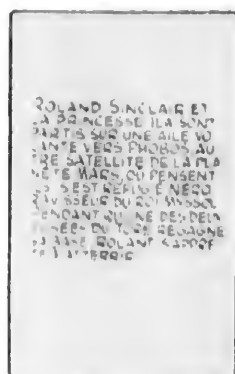 ROLAND SINCLAIR ET
LA PRINCESSE ILA SONT
PARTIS SUR UNE AILE VO
LANTE VERS PHOBOS, AU
TRE SATELLITE DE LA PLA
NÈTE MARS, OÙ PENSENT
S'EST RÉFUGIÉ NERO
RAVISSEUR DU ROI
PENDANT QU'UNE DES
DU REGAGNE
LA BASE, ROLAND